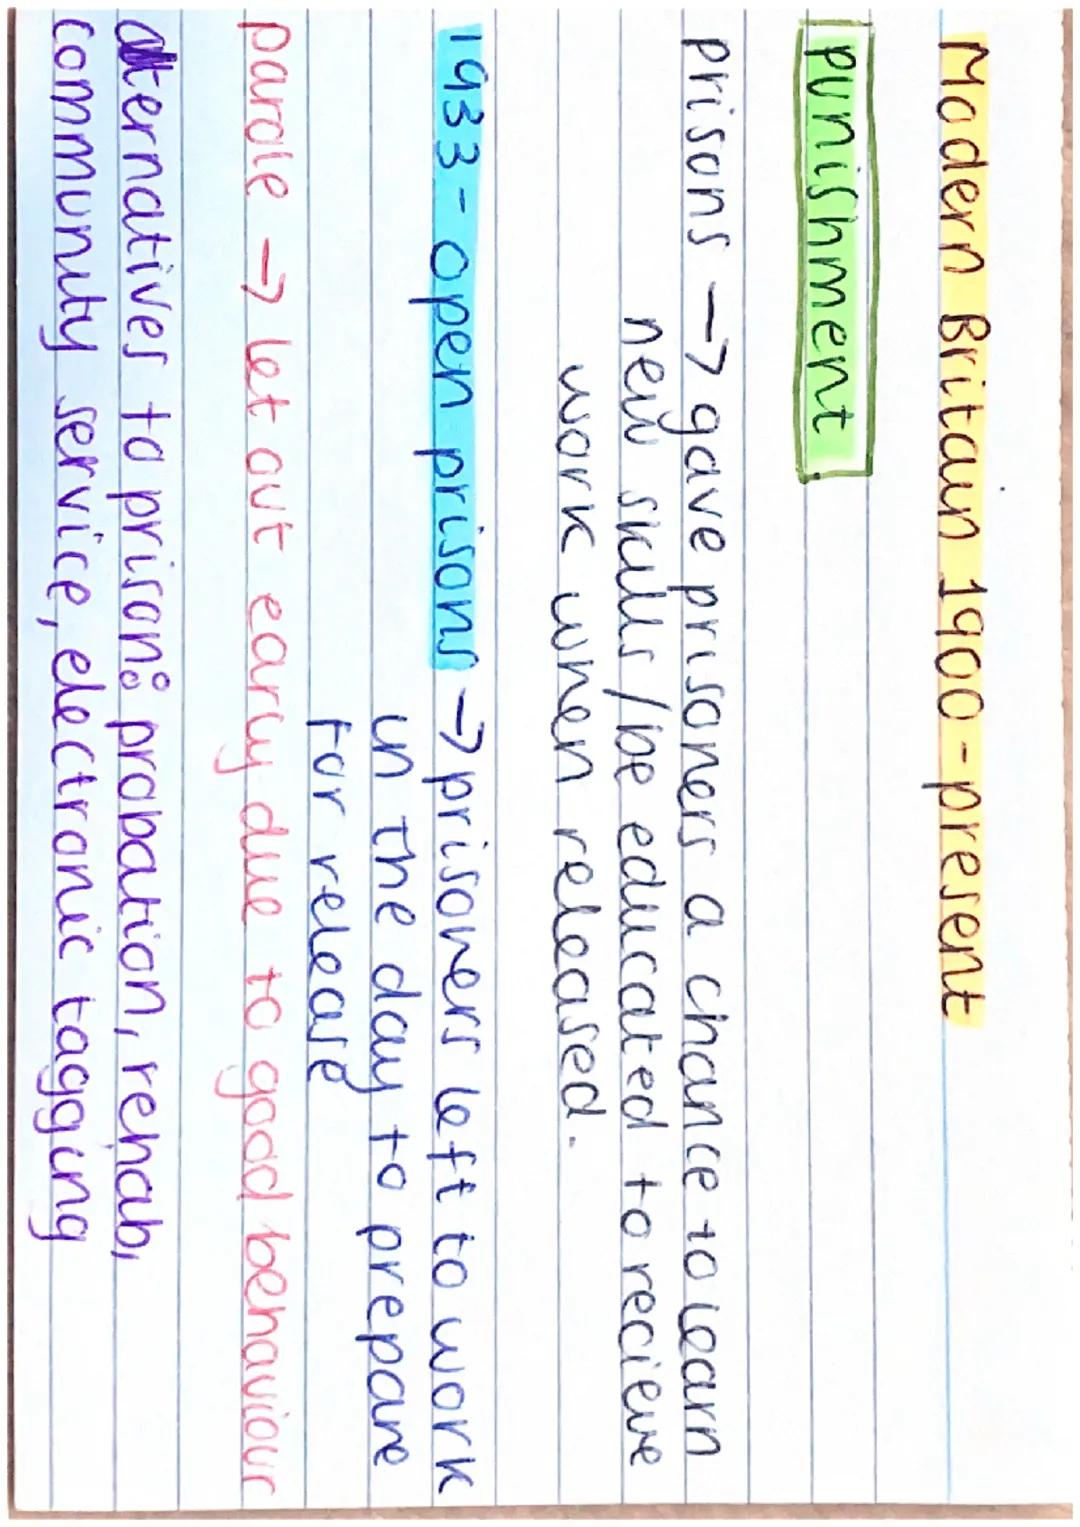 Modern Britain 1900 - present
punishment
prisons → gave prisoners a chance to learn
new skills / be educated to recieve
work when released.
1933 - open prisons → prisoners left to work
in the day to prepare
for release
parole → let out early due to good behaviour
alternatives to prison: probation, rehab,
community service, electronic tagging